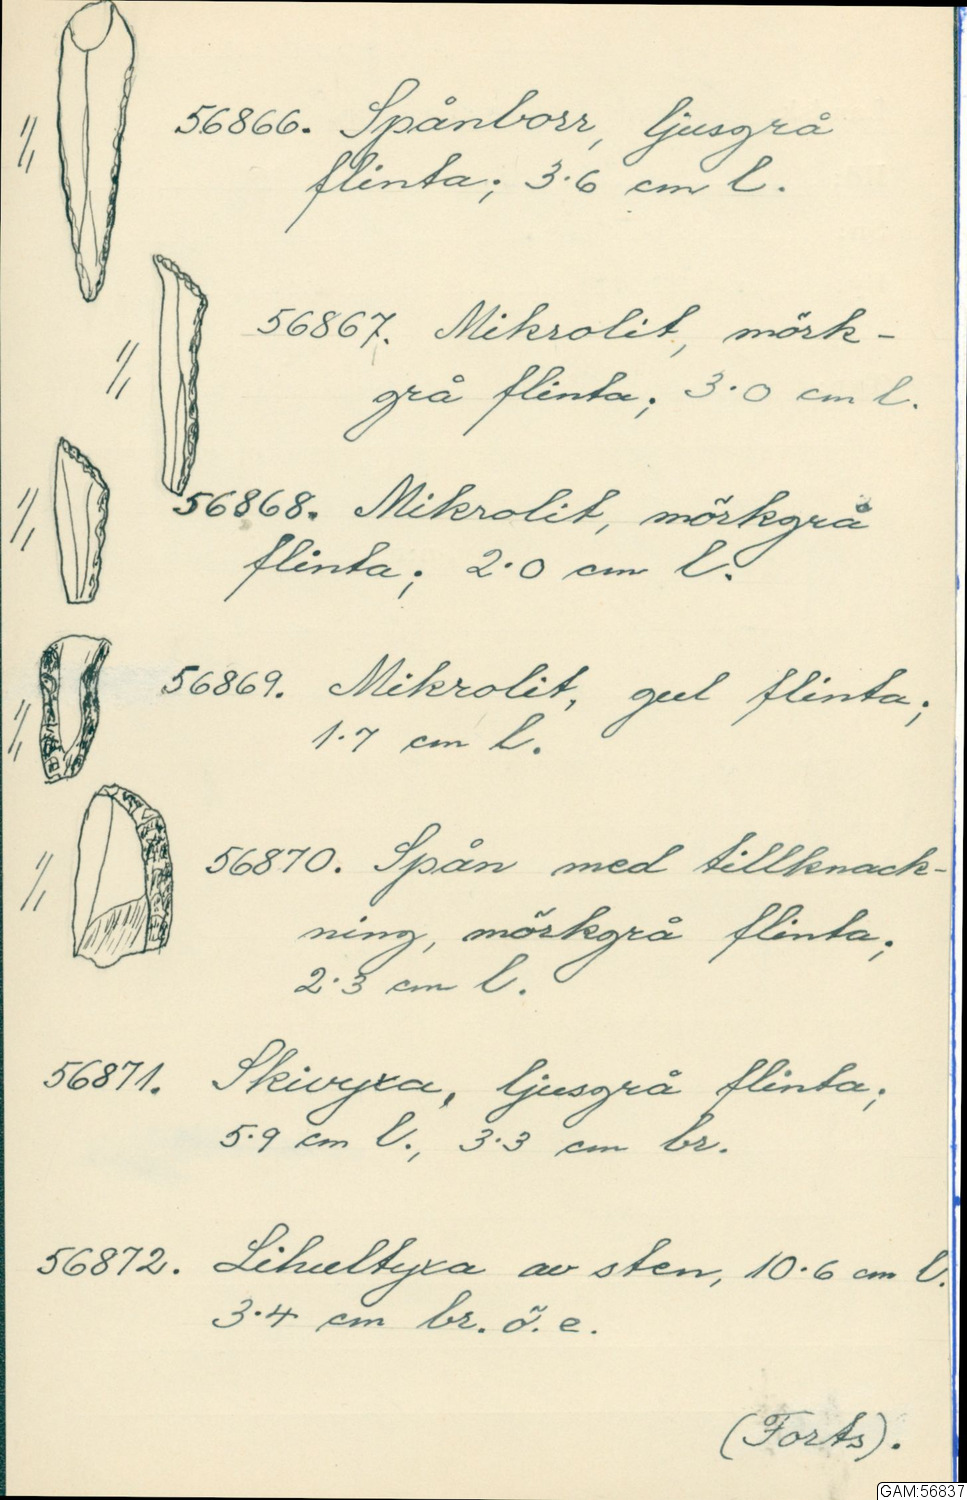 56866. Spånborr, ljusgrå
flinta; 3.6 cm l.
1/1
56867. Mikrolit, mörk-
grå flinta; 3.0 cm l.
1/1
56868. Mikrolit, mörkgrå
flinta; 2.0 cm l.
1/1
56869. Mikrolit, gul flinta;
1.7 cm l.
1/1
56870. Spån med tillknack-
ning, mörkgrå flinta;
2.3 cm l.
1/1
56871. Skivyxa, ljusgrå flinta;
5.9 cm l., 3.3 cm br.
56872. Lihultyxa av sten, 10.6 cm l.
3.4 cm br. ö. e.
(Forts).
GAM:56837